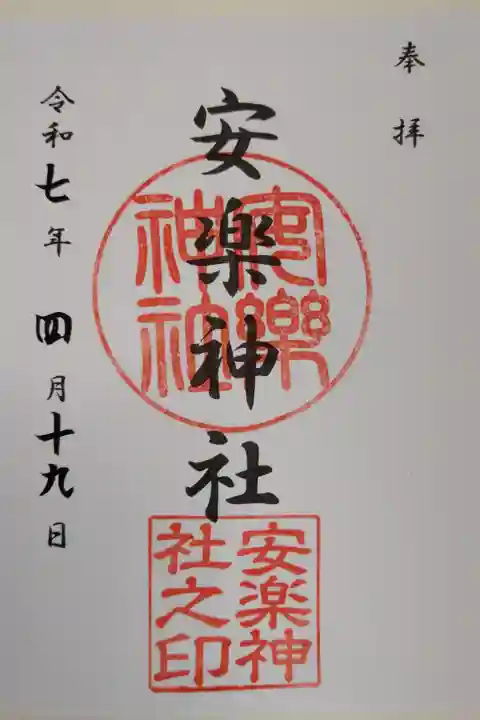 奉拝
安楽神社
安樂
神社
安楽神
社之印
令和七年 四月十九日